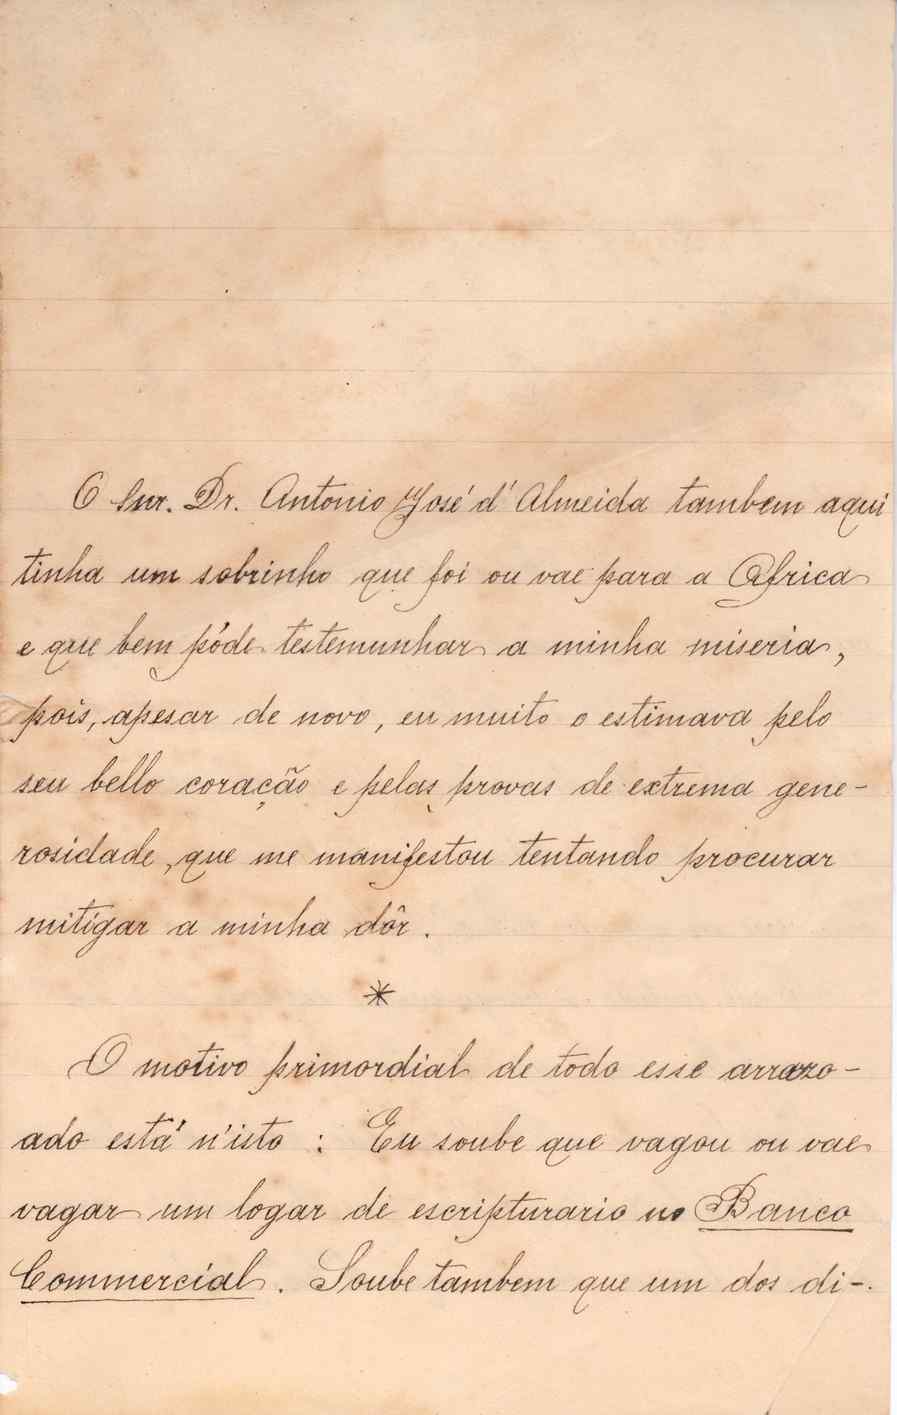 O Snr. Dr. Antonio José d'Almeida tambem aqui
tinha um sobrinho que foi ou vae para a Africa
e que bem póde testemunhar a minha miseria,
pois, apesar de novo, eu muito o estimava pelo
seu bello coração e pelas provas de extrema gene-
rosidade, que me manifestou tentando procurar
mitigar a minha dôr.
*
O motivo primordial de todo esse arrazo-
ado está n'isto : Eu soube que vagou ou vae
vagar um logar de escripturario no Banco
Commercial. Soube tambem que um dos di-